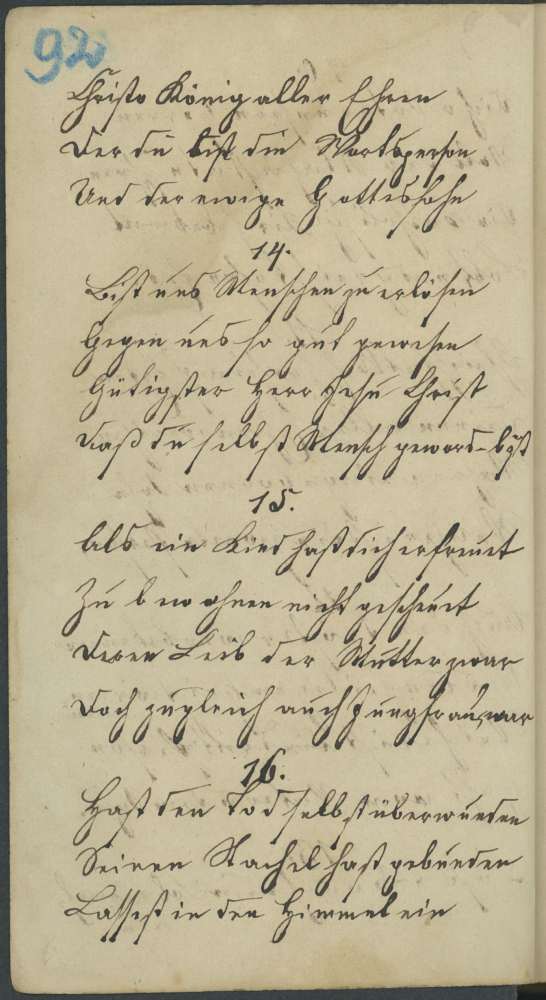 92
Christe König aller Ehren
Der du bist die Wortsperson
Und der ewige Gottessohn
14.
Bist uns Menschen zu erlösen
Gegen uns so gut gewesen
Gütigster Herr Jesu Christ
Daß du selbst Mensch geword- bist
15.
Als ein Kind hast dich erfreuet
Zu bewohnen nicht gescheuet
Deren Leib der Mutter zwar
Doch zugleich auch Jungfrau war
16.
Hast den Tod selbst überwunden
Seinen Stachel hast gebunden
Lassest in den Himmel ein